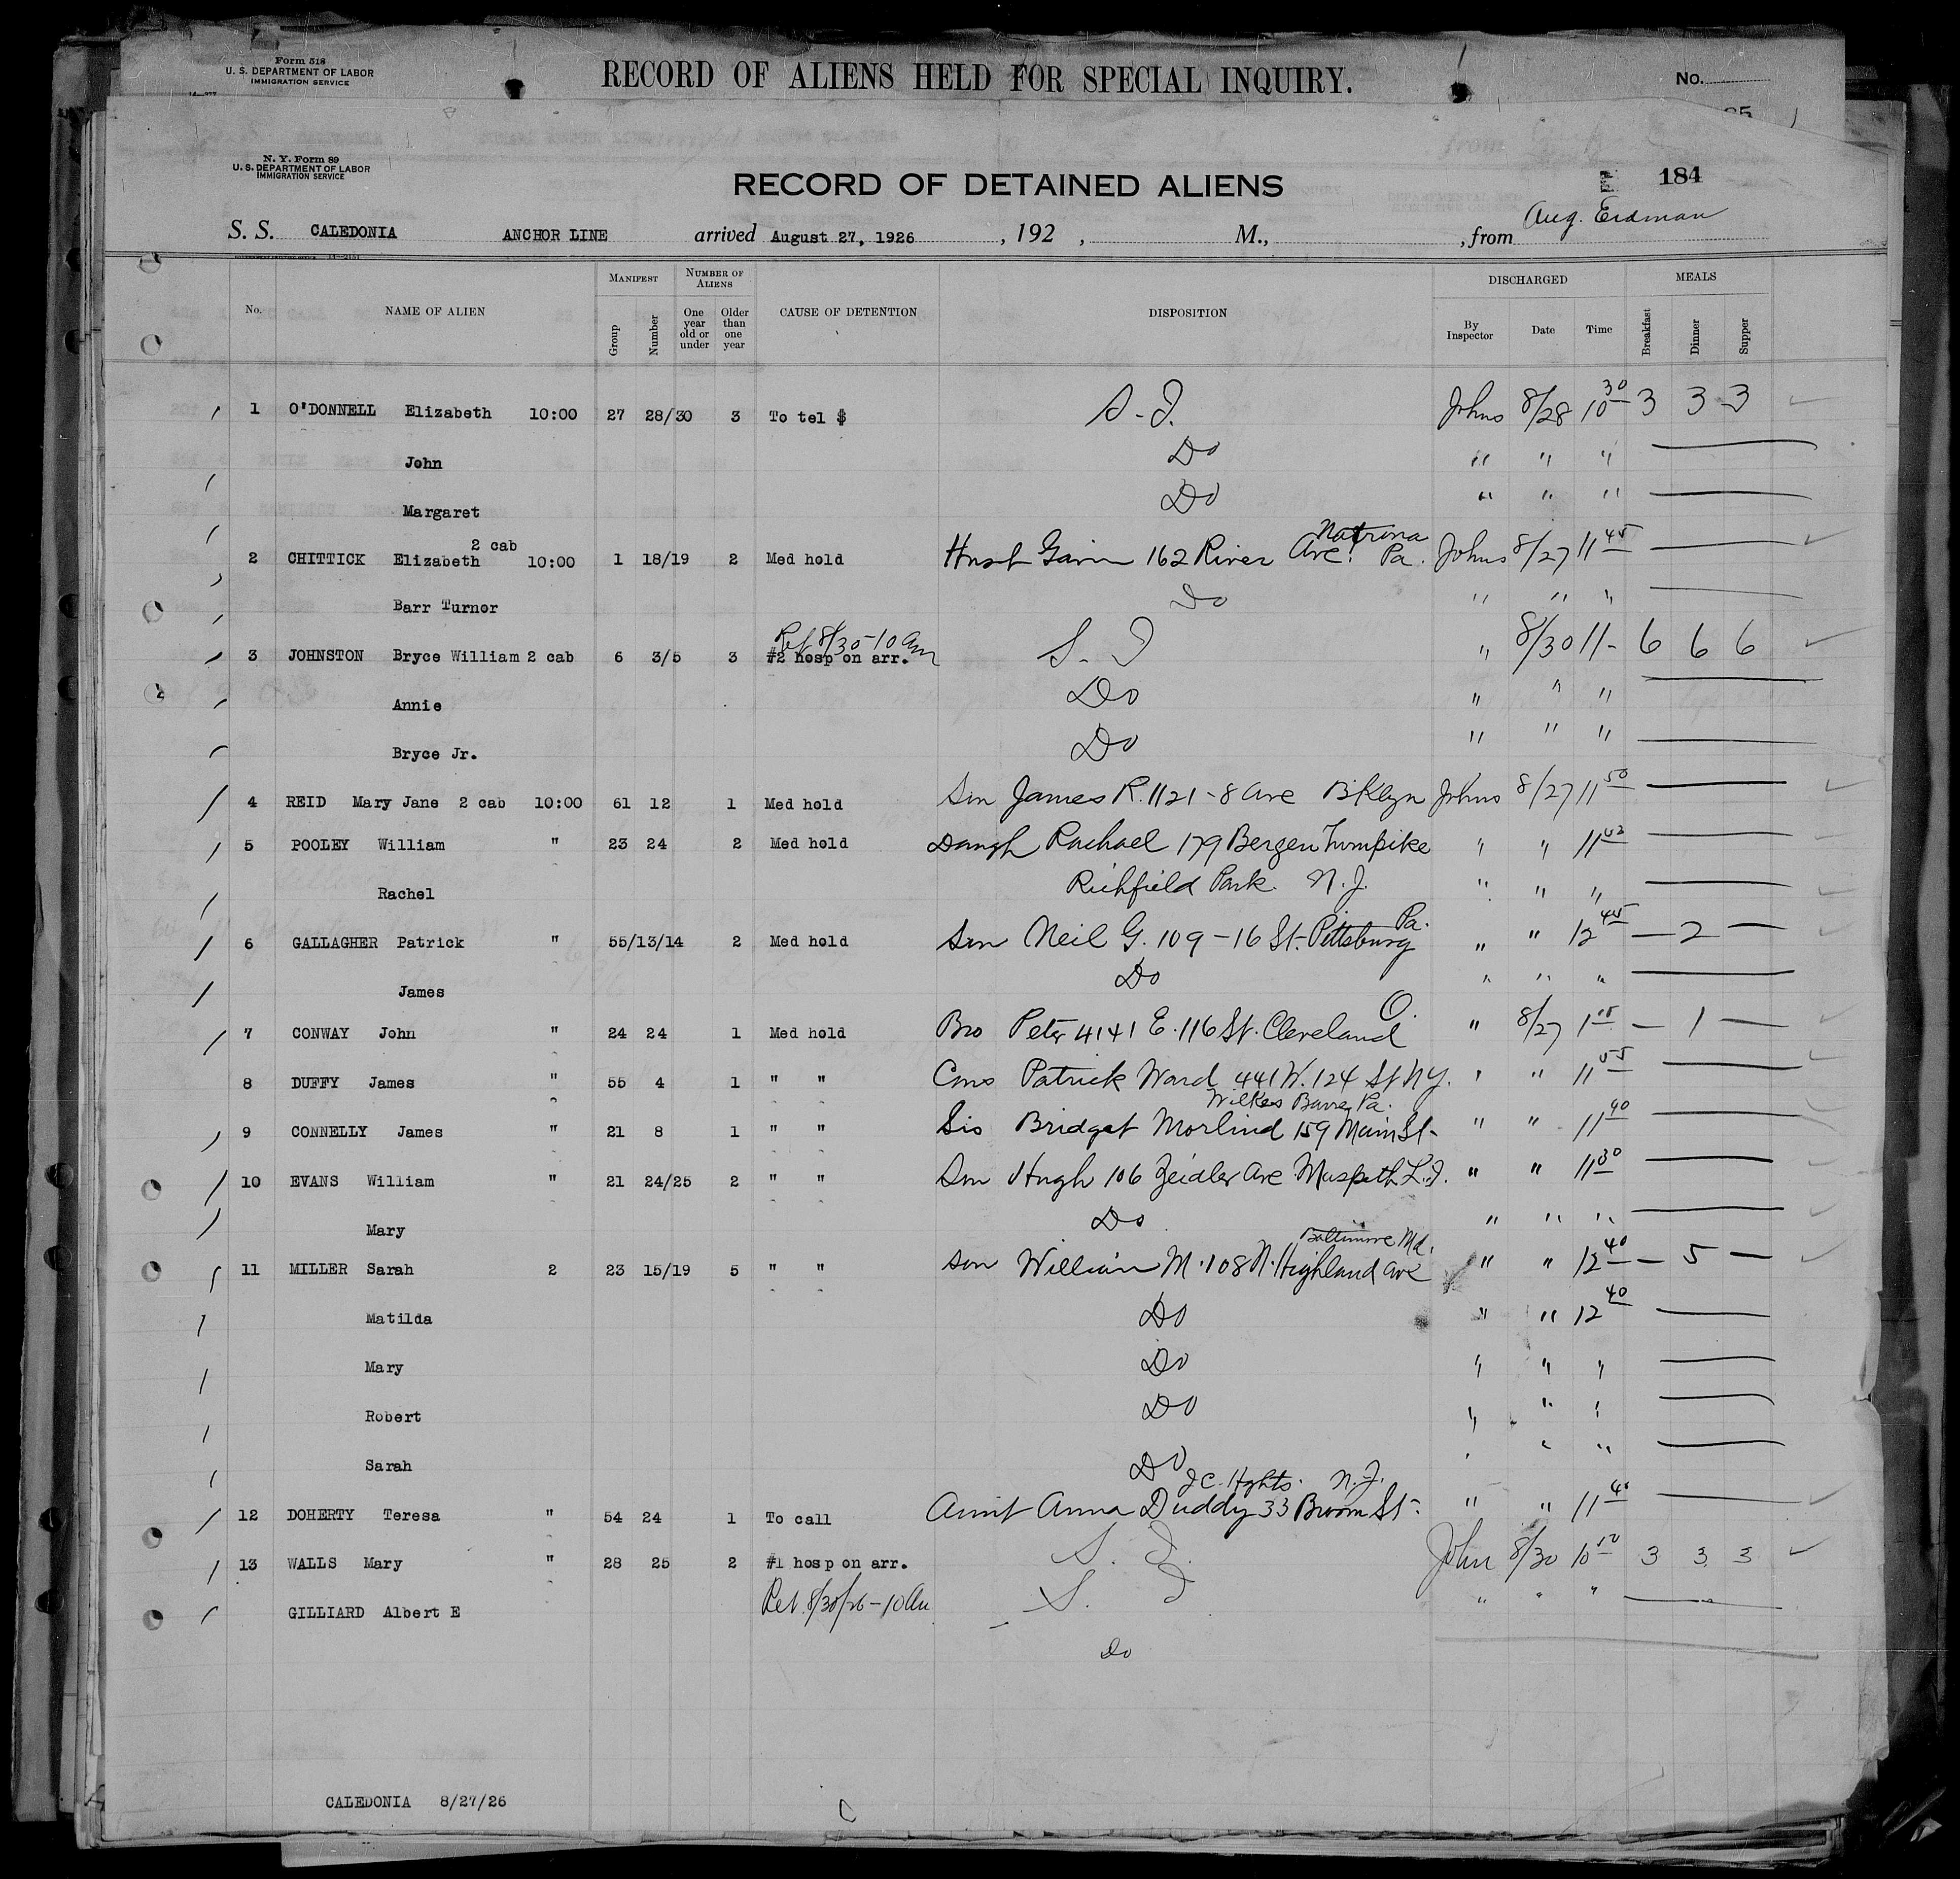 Form 518
U. S. DEPARTMENT OF LABOR
IMMIGRATION SERVICE
RECORD OF ALIENS HELD FOR SPECIAL INQUIRY.
No.
N. Y. Form 89
U. S. DEPARTMENT OF LABOR
IMMIGRATION SERVICE
RECORD OF DETAINED ALIENS
184
S. S. CALEDONIA ANCHOR LINE arrived August 27, 1926, 192 , M., , from Aug. Erdman
No. NAME OF ALIEN MANIFEST NUMBER OF ALIENS CAUSE OF DETENTION DISPOSITION DISCHARGED MEALS
Group Number One year old or under Older than one year By Inspector Date Time Breakfast Dinner Supper
1 O'DONNELL Elizabeth 10:00 27 28/30 3 To tel $ S. I. Johns 8/28 10 30 3 3 3
John Do " " "
Margaret Do " " "
2 cab Natrona
2 CHITTICK Elizabeth 10:00 1 18/19 2 Med hold Husb Gavin 162 River Ave. Pa. Johns 8/27 11 45
Barr Turnor Do " " "
Ret 8/30-10 am
3 JOHNSTON Bryce William 2 cab 6 3/5 3 #2 hosp on arr. S. I " 8/30 11- 6 6 6
Annie Do " " "
Bryce Jr. Do " " "
4 REID Mary Jane 2 cab 10:00 61 12 1 Med hold Son James R. 1121-8 Ave Bklyn Johns 8/27 11 50
5 POOLEY William " 23 24 2 Med hold Daugh Rachael 179 Bergen Turnpike " " 11
Rachel Richfield Park. N. J. " " "
Pa.
6 GALLAGHER Patrick " 55/13/14 2 Med hold Son Neil G. 109-16 St. Pittsburg " " 12 45 — 2 —
James Do " " "
O.
7 CONWAY John " 24 24 1 Med hold Bro Peter 4141 E. 116 St. Cleveland " 8/27 1 15 — 1 —
8 DUFFY James " 55 4 1 " " Cous Patrick Ward 441 W. 124 St N.Y. " " 11 55
Wilkes Barre, Pa.
9 CONNELLY James " 21 8 1 " " Sis Bridget Morlind 159 Main St- " " 11 40
10 EVANS William " 21 24/25 2 " " Son Hugh 106 Zeidler Ave Maspeth L.I. " " 11 30
Mary Do " " "
Baltimore Md.
11 MILLER Sarah 2 23 15/19 5 " " Son William M. 108 N. Highland Ave " " 12 40 — 5 —
Matilda Do " " 12 40
Mary Do " " "
Robert Do " " "
Sarah Do " " "
J C. Hghts. N. J.
12 DOHERTY Teresa " 54 24 1 To call Aunt Anna Duddy 33 Broom St- " " 11
13 WALLS Mary " 28 25 2 #1 hosp on arr. S. I. John 8/30 10 50 3 3 3
GILLIARD Albert E Ret 8/30/26-10 Am S. I " " "
Do
CALEDONIA 8/27/26